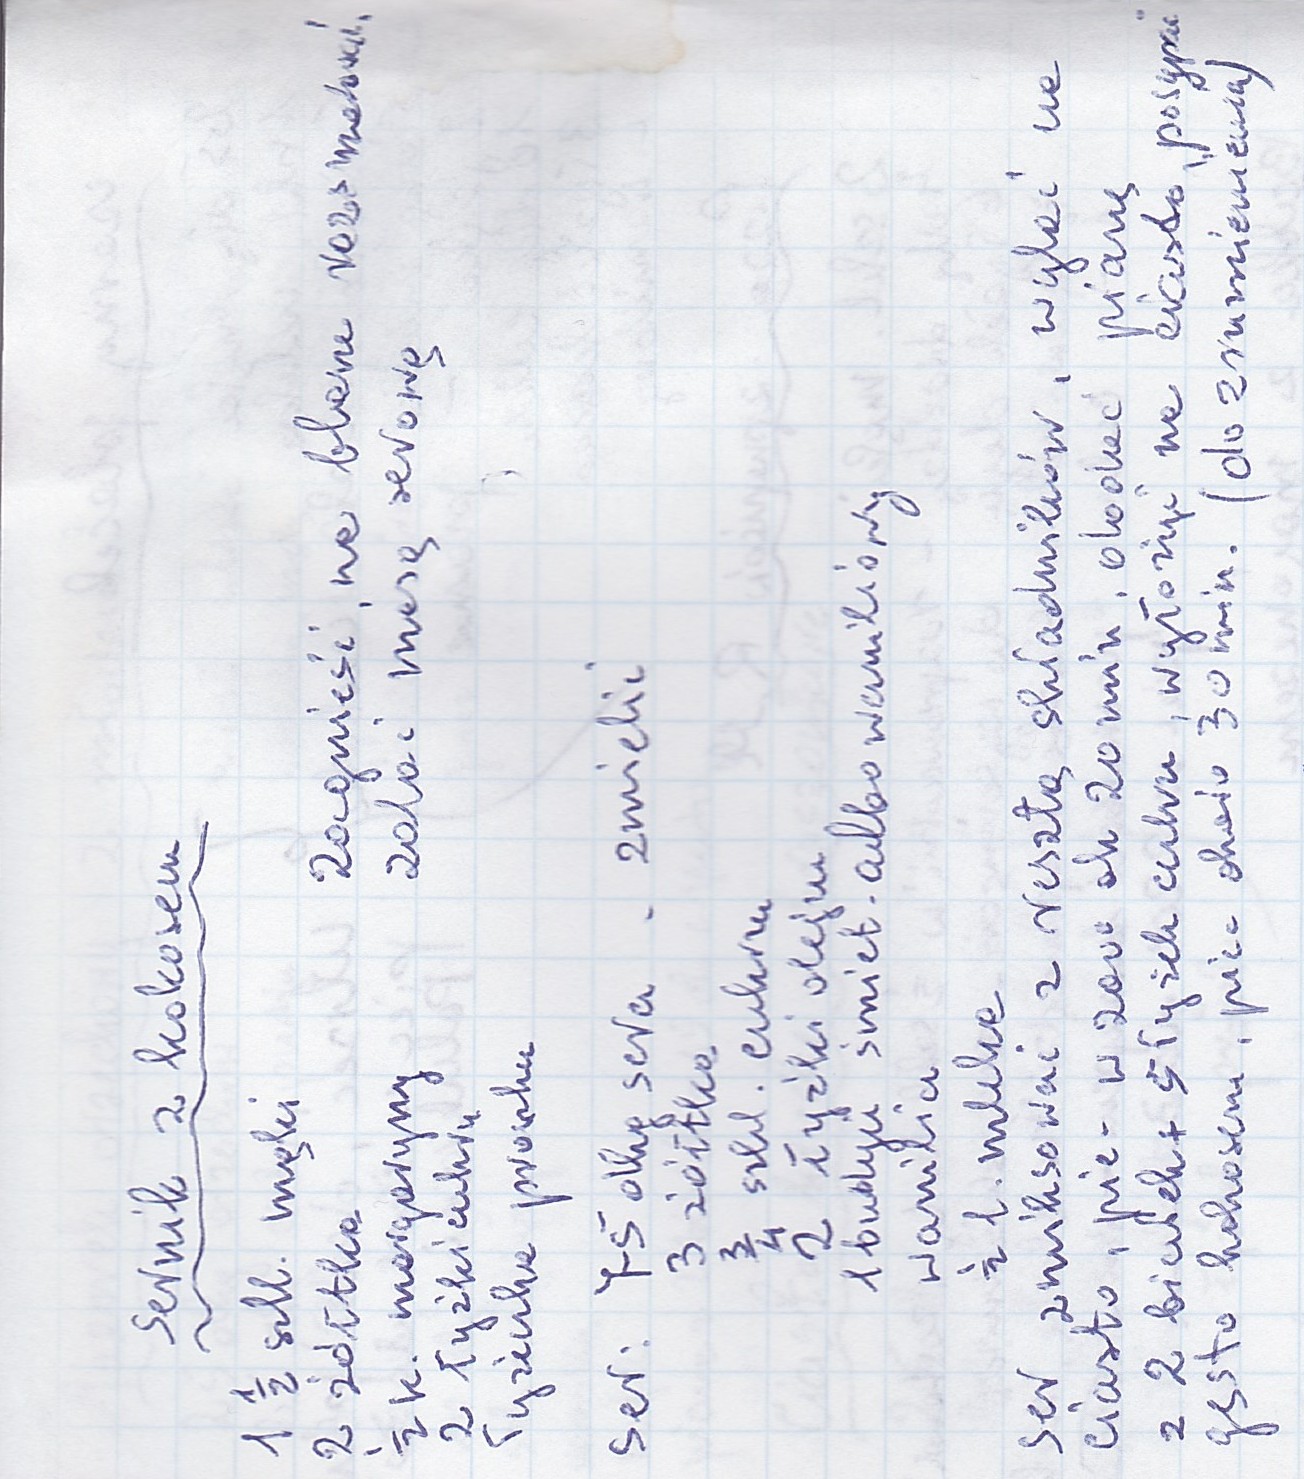 Sernik z kokosem
1 1/2 szkl. mąki
2 żółtka
1/2 k. margaryny
2 łyżki cukru
łyżeczka proszku
Zagnieść, na blasze rozsmarować.
zalać masą serową
ser: 75 dkg sera - zmielić
3 żółtka
3/4 szkl. cukru
2 łyżki oleju
1 budyń śmiet. albo waniliowy
wanilia
1/2 l. mleka
ser zmiksować z resztą składników, wylać na
ciasto, piec w 200° ok 20 min, dodać pianę
z 2 białek + 5 łyżek cukru, wyłożyć na ciasto, posypać
gęsto kokosem, piec około 30 min. (do zrumienienia)